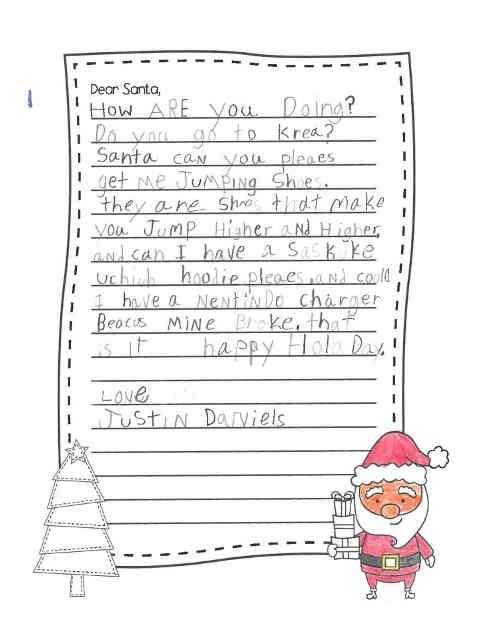 Dear Santa,
How ARE you Doing?
Do you go to Krea?
Santa can you pleaes
get me Jumping Shoes.
they are Shoes that make
you Jump Higher and Higher,
and can I have a Saskike
uchiuh hoodie pleaes, and coold
I have a NentinDo charger
Beacus MiNE Broke. that
is it happy Hola Day.
LOVE
JUSTIN Darviels